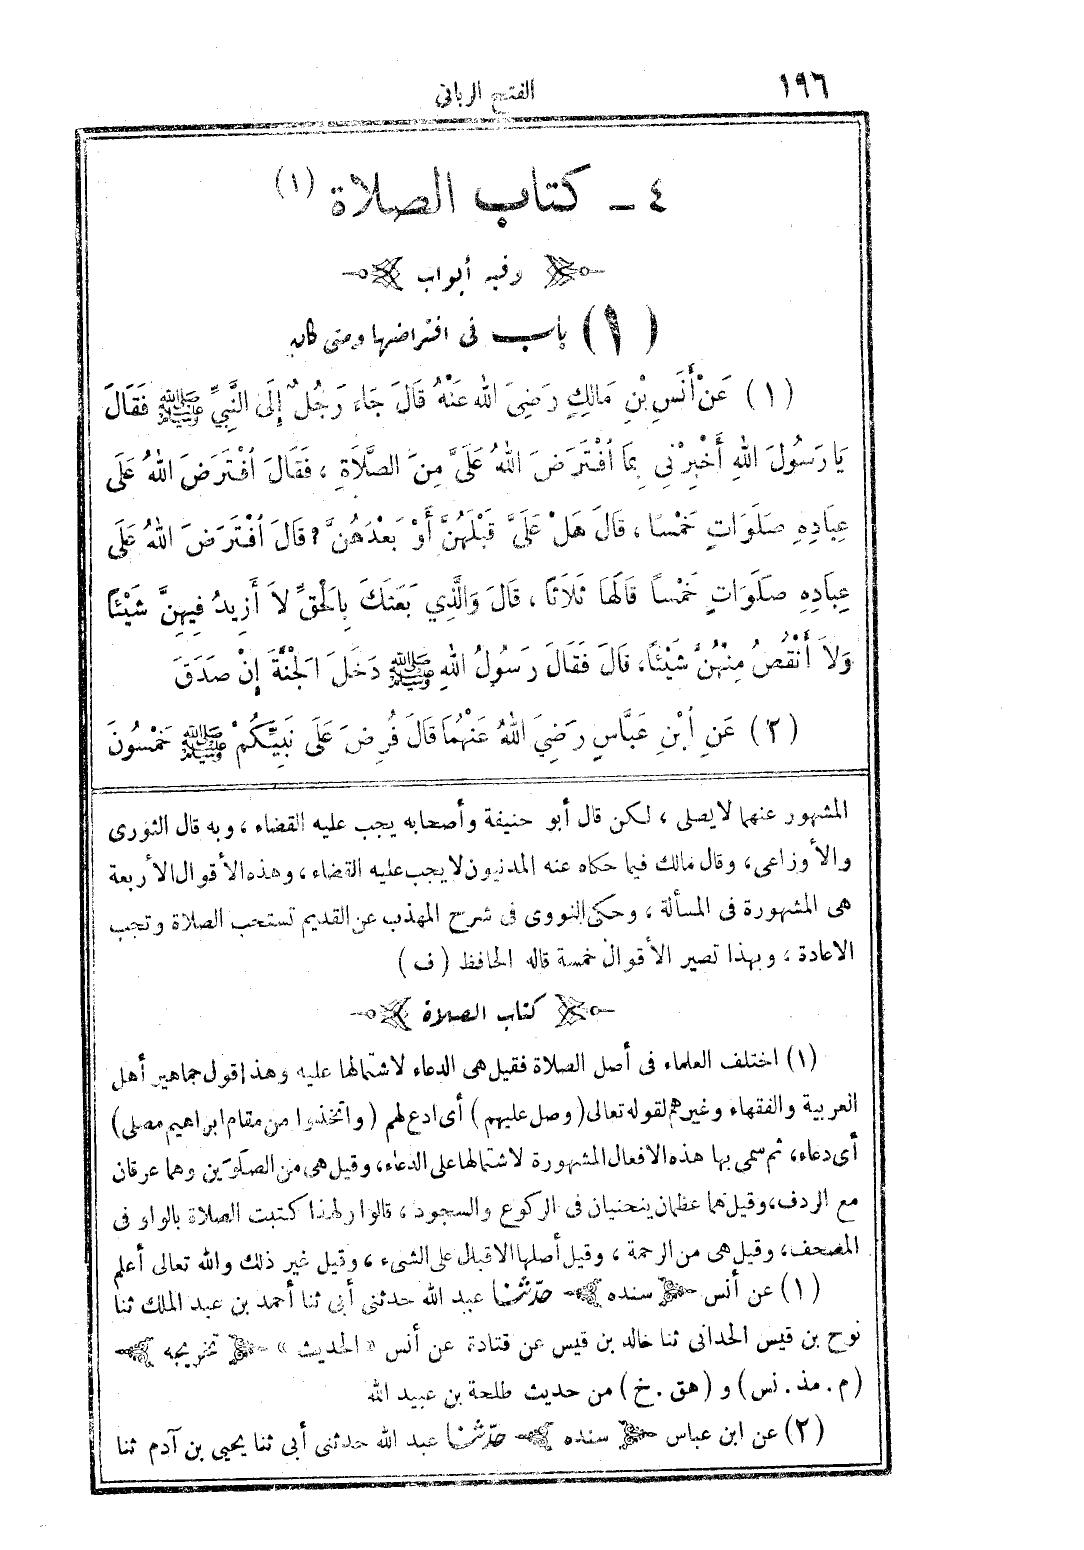 ١٩٦
الفتح الربانى
٤ ـ كتاب الصلاة (١)
وفيه أبواب
(١) باب فى افتراضها ومتى كانه
(١) عَنْ أَنَسِ بْنِ مَالِكٍ رَضِىَ اللهُ عَنْهُ قَالَ جَاءَ رَجُلٌ إِلَى النَّبِيِّ ﷺ فَقَالَ
يَا رَسُولَ اللهِ أَخْبِرْنِى بِمَا ٱفْتَرَضَ اللهُ عَلَىَّ مِنَ الصَّلَاةِ ، فَقَالَ ٱفْتَرَضَ اللهُ عَلَى
عِبَادِهِ صَلَوَاتٍ خَمْسًا ، قَالَ هَلْ عَلَىَّ قَبْلَهُنَّ أَوْ بَعْدَهُنَّ ؟ قَالَ ٱفْتَرَضَ اللهُ عَلَى
عِبَادِهِ صَلَوَاتٍ خَمْسًا قَالَهَا ثَلَاثًا ، قَالَ وَالَّذِي بَعَثَكَ بِالْحَقِّ لَا أَزِيدُ فِيهِنَّ شَيْئًا
وَلَا أَنْقُصُ مِنْهُنَّ شَيْئًا، قَالَ فَقَالَ رَسُولُ اللهِ ﷺ دَخَلَ الْجَنَّةَ إِنْ صَدَقَ
(٢) عَنِ ٱبْنِ عَبَّاسٍ رَضِيَ اللهُ عَنْهُمَا قَالَ فُرِضَ عَلَى نَبِيِّكُمْ ﷺ خَمْسُونَ
المشهور عنهما لا يصلى ، لكن قال أبو حنيفة وأصحابه يجب عليه القضاء ، وبه قال الثورى
والأوزاعى، وقال مالك فيما حكاه عنه المدنيون لا يجب عليه القضاء ، وهذه الأقوال الأربعة
هى المشهورة فى المسألة ، وحكى النووى فى شرح المهذب عن القديم تستحب الصلاة وتجب
الاعادة ، وبهذا تصير الأقوال خمسة قاله الحافظ (ف)
كتاب الصلاة
(١) اختلف العلماء فى أصل الصلاة فقيل هى الدعاء لاشتمالها عليه وهذا قول جماهير أهل
العربية والفقهاء وغيرهم لقوله تعالى (وصل عليهم) أى ادع لهم (واتخذوا من مقام ابراهيم مصلى)
أى دعاء، ثم سمى بها هذه الافعال المشهورة لاشتمالها على الدعاء، وقيل هى من الصلوين وهما عرقان
مع الردف، وقيل هما عظمان ينحنيان فى الركوع والسجود ، قالوا ولهذا كتبت الصلاة بالواو فى
المصحف، وقيل هى من الرحمة ، وقيل أصلها الاقبال على الشىء ، وقيل غير ذلك والله تعالى أعلم
(١) عن أنس سنده حدّثنا عبد الله حدثنى أبى ثنا أحمد بن عبد الملك ثنا
نوح بن قيس الحدانى ثنا خالد بن قيس عن قتادة عن أنس «الحديث» تخريجه
(م . مذ . نس) و (هق . خ) من حديث طلحة بن عبيد الله
(٢) عن ابن عباس سنده حدّثنا عبد الله حدثنى أبى ثنا يحيى بن آدم ثنا